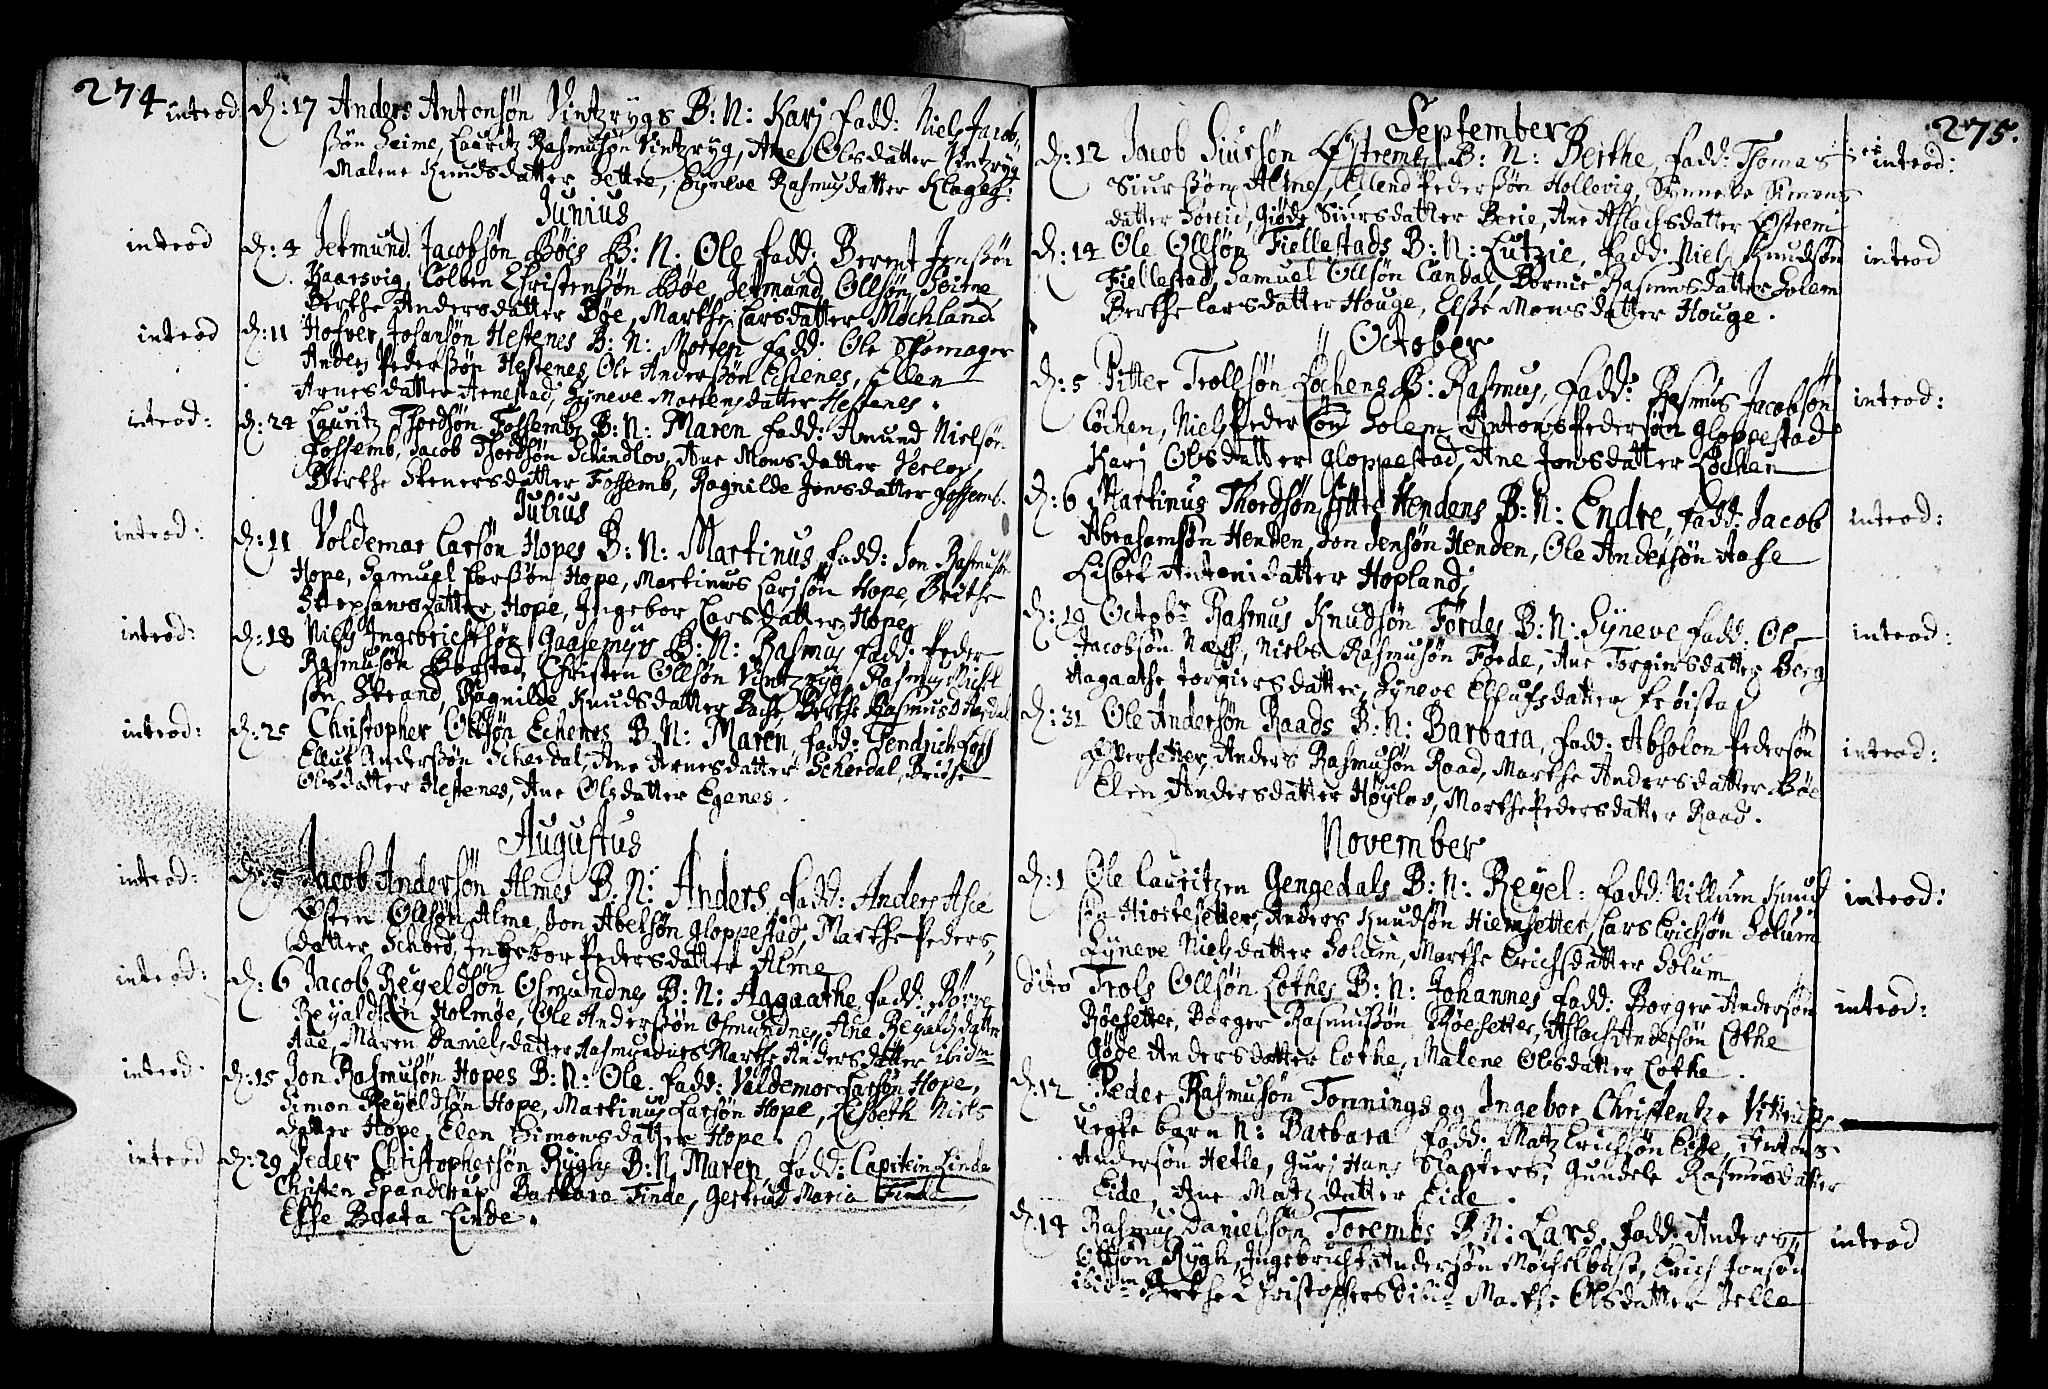 274
introd: D: 17 Anders Antonsøn Vintzrygs B: N: Karj fadd: Niels Jacob-
søn Heime, Lauritz Rasmusøn Vintzryg, Ane Olsdatter Vintzryg
Malene Knudsdatter Settre, Syneve Rasmusdatter
Junius
introd D: 4 Jetmund Jacobsøn Bøes B: N: Ole fadd: Berent Jenssøn
Kaarsvig, Colben Christenssøn Bøe, Jetmund Ollsøn
Berthe Andersdatter Bøe, Marthe Larsdatter Mochland
introd D: 11 Hofver Johansøn Hestenes B: N: Morten fadd: Ole Skomager
Anders Pederssøn Hestenes, Ole Anderssøn Estenes, Ellen
Arnesdatter Arnestad, Syneve Mortensdatter Hestenes.
introd: D: 24 Lauritz Thordsøn Fossembs B: N: Maren fadd: Amund Nielsøn
Fossemb, Jacob Thordsøn Schindlov, Ane Monsdatter
Berthe Stenersdatter Fossemb, Ragnilde Jonsdatter Fossemb.
Julius
introd: D: 11 Voldemar Larsøn Hopes B: N: Martinus, fadd: Jon Rasmusøn
Hope, Samuel Larssøn Hope, Martinus Larssøn Hope, Brithe
Stephansdatter Hope, Ingebor Larsdatter Hope
introd: D: 18 Niels Ingebrichtsøn Gaasemyr B: N: Rasmus fadd: Peder
Rasmusøn Bogstad, Christen Ollsøn Vintzryg, Rasmus
søn Strand, Ragnilde Knudsdatter Berthe Rasmusd
introd: D: 25 Christopher Ollsøn Echenes B: N: Maren, fadd: Hendrich Foss
Elluf Anderssøn Scherdal, Ane Arnesdatter Scherdal,
Olsdatter Hestenes, Ane Olsdatter Egenes.
Augustus
introd: D: 5 Jacob Andersøn Almes B: N: Anders fadd: Anders Asce
Østen Ollsøn Alme, Jon Abelsøn Gloppestad, Marthe Peders
datter Schoed, Ingebor Pedersdatter Alme
introd: D: 6 Jacob Reyeldsøn Osmundnes B: N: Aagaathe fadd: Børre
Reyaldsøn Holmøe, Ole Anderssøn Osmundnes, Ane Reyaldsdatter
Aae, Maren Danielsdatter Aasmundnes Marthe Andersdatter ibidm
introd: D: 15 Jon Rasmusøn Hopes B: N: Ole. fadd: Valdemor Larsøn Hope,
Simon Reyeldsøn Hope, Martinus Larsøn Hope, Lisbeth Niels
datter Hope, Elen Simonsdatter Hope.
introd D: 29 Peder Christophersøn Ryghs B: N: Maren, fadd: Capitein Linde
Christen Spanderup, Barbara Finde, Gertrud Maria
Else Beata Linde.
275.
September
introd: D: 12 Jacob Siursøn Østrembs B: N: Berthe, fadd: Thomas
Siurssøn Almes, Ellend Pederssøn Hollevig, Synneve Simens
datter Søreid, Giøde Siursdatter Berie, Ane Aslachsdatter Østrem
introd D: 14 Ole Ollsøn Fiellestads B: N: Lutzie, fadd: Niels Knudsøn
Fiellestad, Samuel Ollsøn Candal, Bornie Rasmusdatter Solem
Berthe Larsdatter Houge, Elsse Monsdatter Houge.
October
introd: D: 5 Pitter Trollsøn Løchens B: Rasmus, fadd: Rasmus Jacobsøn
Løchen, Niels Pedersøn Solem Antons Pedersøn Gloppestad
Karj Olsdatter Gloppestad, Ane Jonsdatter Løchen
introd: D: 6 Martinus Thordsøn Hendens B: N: Endre, fadd: Jacob
Abrahamsøn Henden, Jon Jensøn Henden, Ole Andersøn Aase
Lisbet Antonidatter Hopland;
introd: D: 19 Octobr Rasmus Knudsøn Førdes B: N: Syneve fadd: Ole
Jacobsøn Næss, Niels Rasmusøn Førde, Ane Torgiersdatter Berg
Aagaathe Torgiersdatter, Syneve Ellufsdatter Frøistad
introd: D: 31 Ole Andersøn Raads B: N: Barbara, fadd: Absolon Pedersøn
Anders Rasmusøn Raad, Marthe Andersdatter Bøe
Elen Andersdatter Høylov, Marthe Pedersdatter Raad.
November
introd: D: 1 Ole Lauritzen Gengedals B: N: Reyel: fadd: Villum Knud
søn Hiortesetter, Anders Knudsøn Hiemsetter, Lars Erichsøn Solum
Syneve Nielsdatter Solum, Marthe Erichsdatter Solum
introd: Dito Trols Ollsøn Lothes B: N: Johannes fadd: Borger Andersøn
Røesetter, Borger Rasmussøn Røesetter, Aslach Andersøn Lothe
Gjøde Andersdatter Lothe, Malene Olsdatter Lothe.
D: 12 Peder Rasmusøn Tonnings og Ingebor Christentze
Uegte barn N: Barbara fadd: Matz Erichsøn Eide, Antons
Andersøn Hetle, Gurj Hans Slagters, Gundele Rasmusdatter
Eide, Ane Matzdatter Eide.
introd D: 14 Rasmus Danielsøn Torembs B: N: Lars, fadd: Anders
Ollsøn Rygh, Ingebricht Andersøn Møchelbust, Erich Jonsøn
ibidm Berthe Christophersd ibidm Marthe Olsdatter